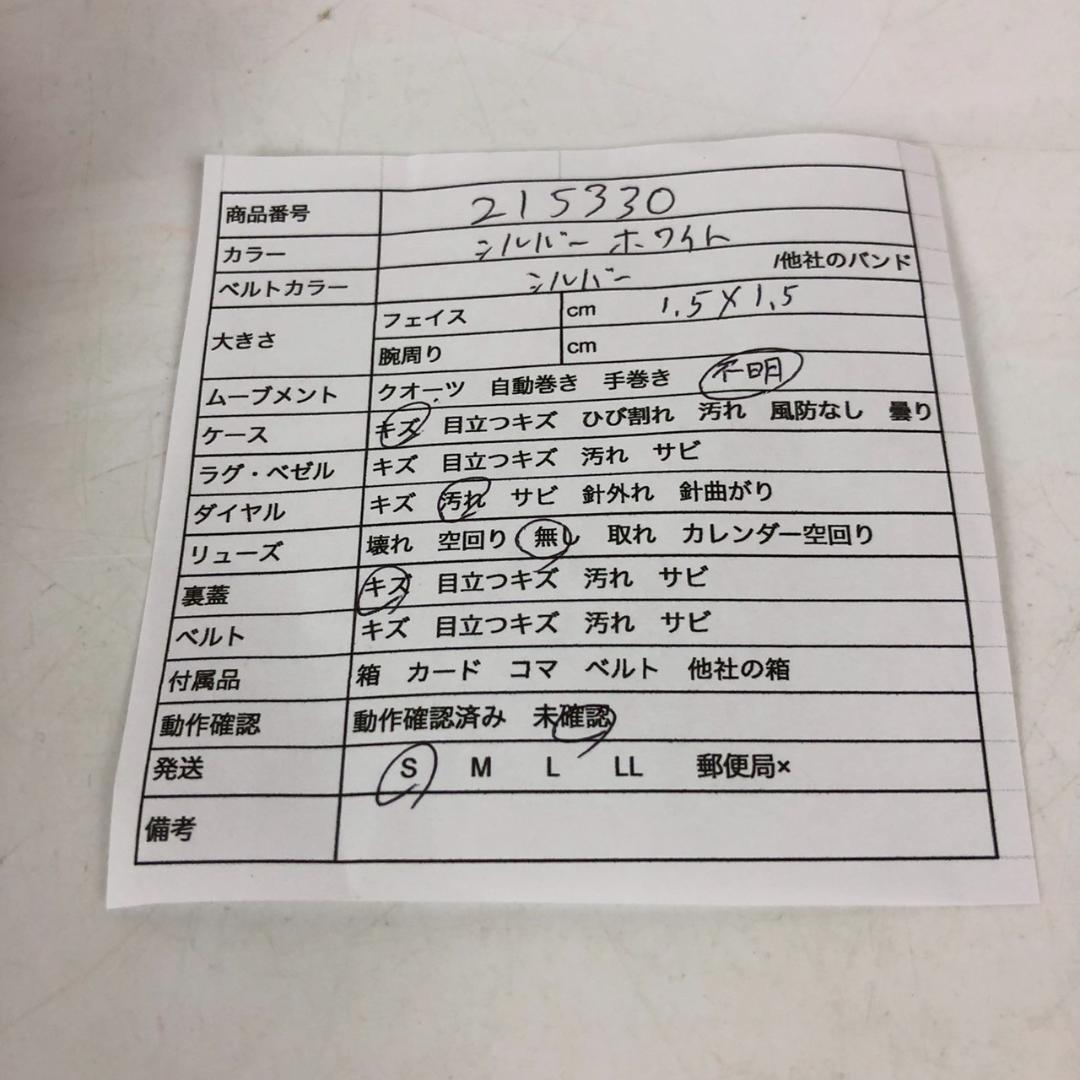 商品番号 215330
カラー シルバー ホワイト
ベルトカラー シルバー /他社のバンド
大きさ フェイス cm 1.5×1.5
腕周り cm
ムーブメント クオーツ 自動巻き 手巻き 不明
ケース キズ 目立つキズ ひび割れ 汚れ 風防なし 曇り
ラグ・ベゼル キズ 目立つキズ 汚れ サビ
ダイヤル キズ 汚れ サビ 針外れ 針曲がり
リューズ 壊れ 空回り 無し 取れ カレンダー空回り
裏蓋 キズ 目立つキズ 汚れ サビ
ベルト キズ 目立つキズ 汚れ サビ
付属品 箱 カード コマ ベルト 他社の箱
動作確認 動作確認済み 未確認
発送 S M L LL 郵便局×
備考